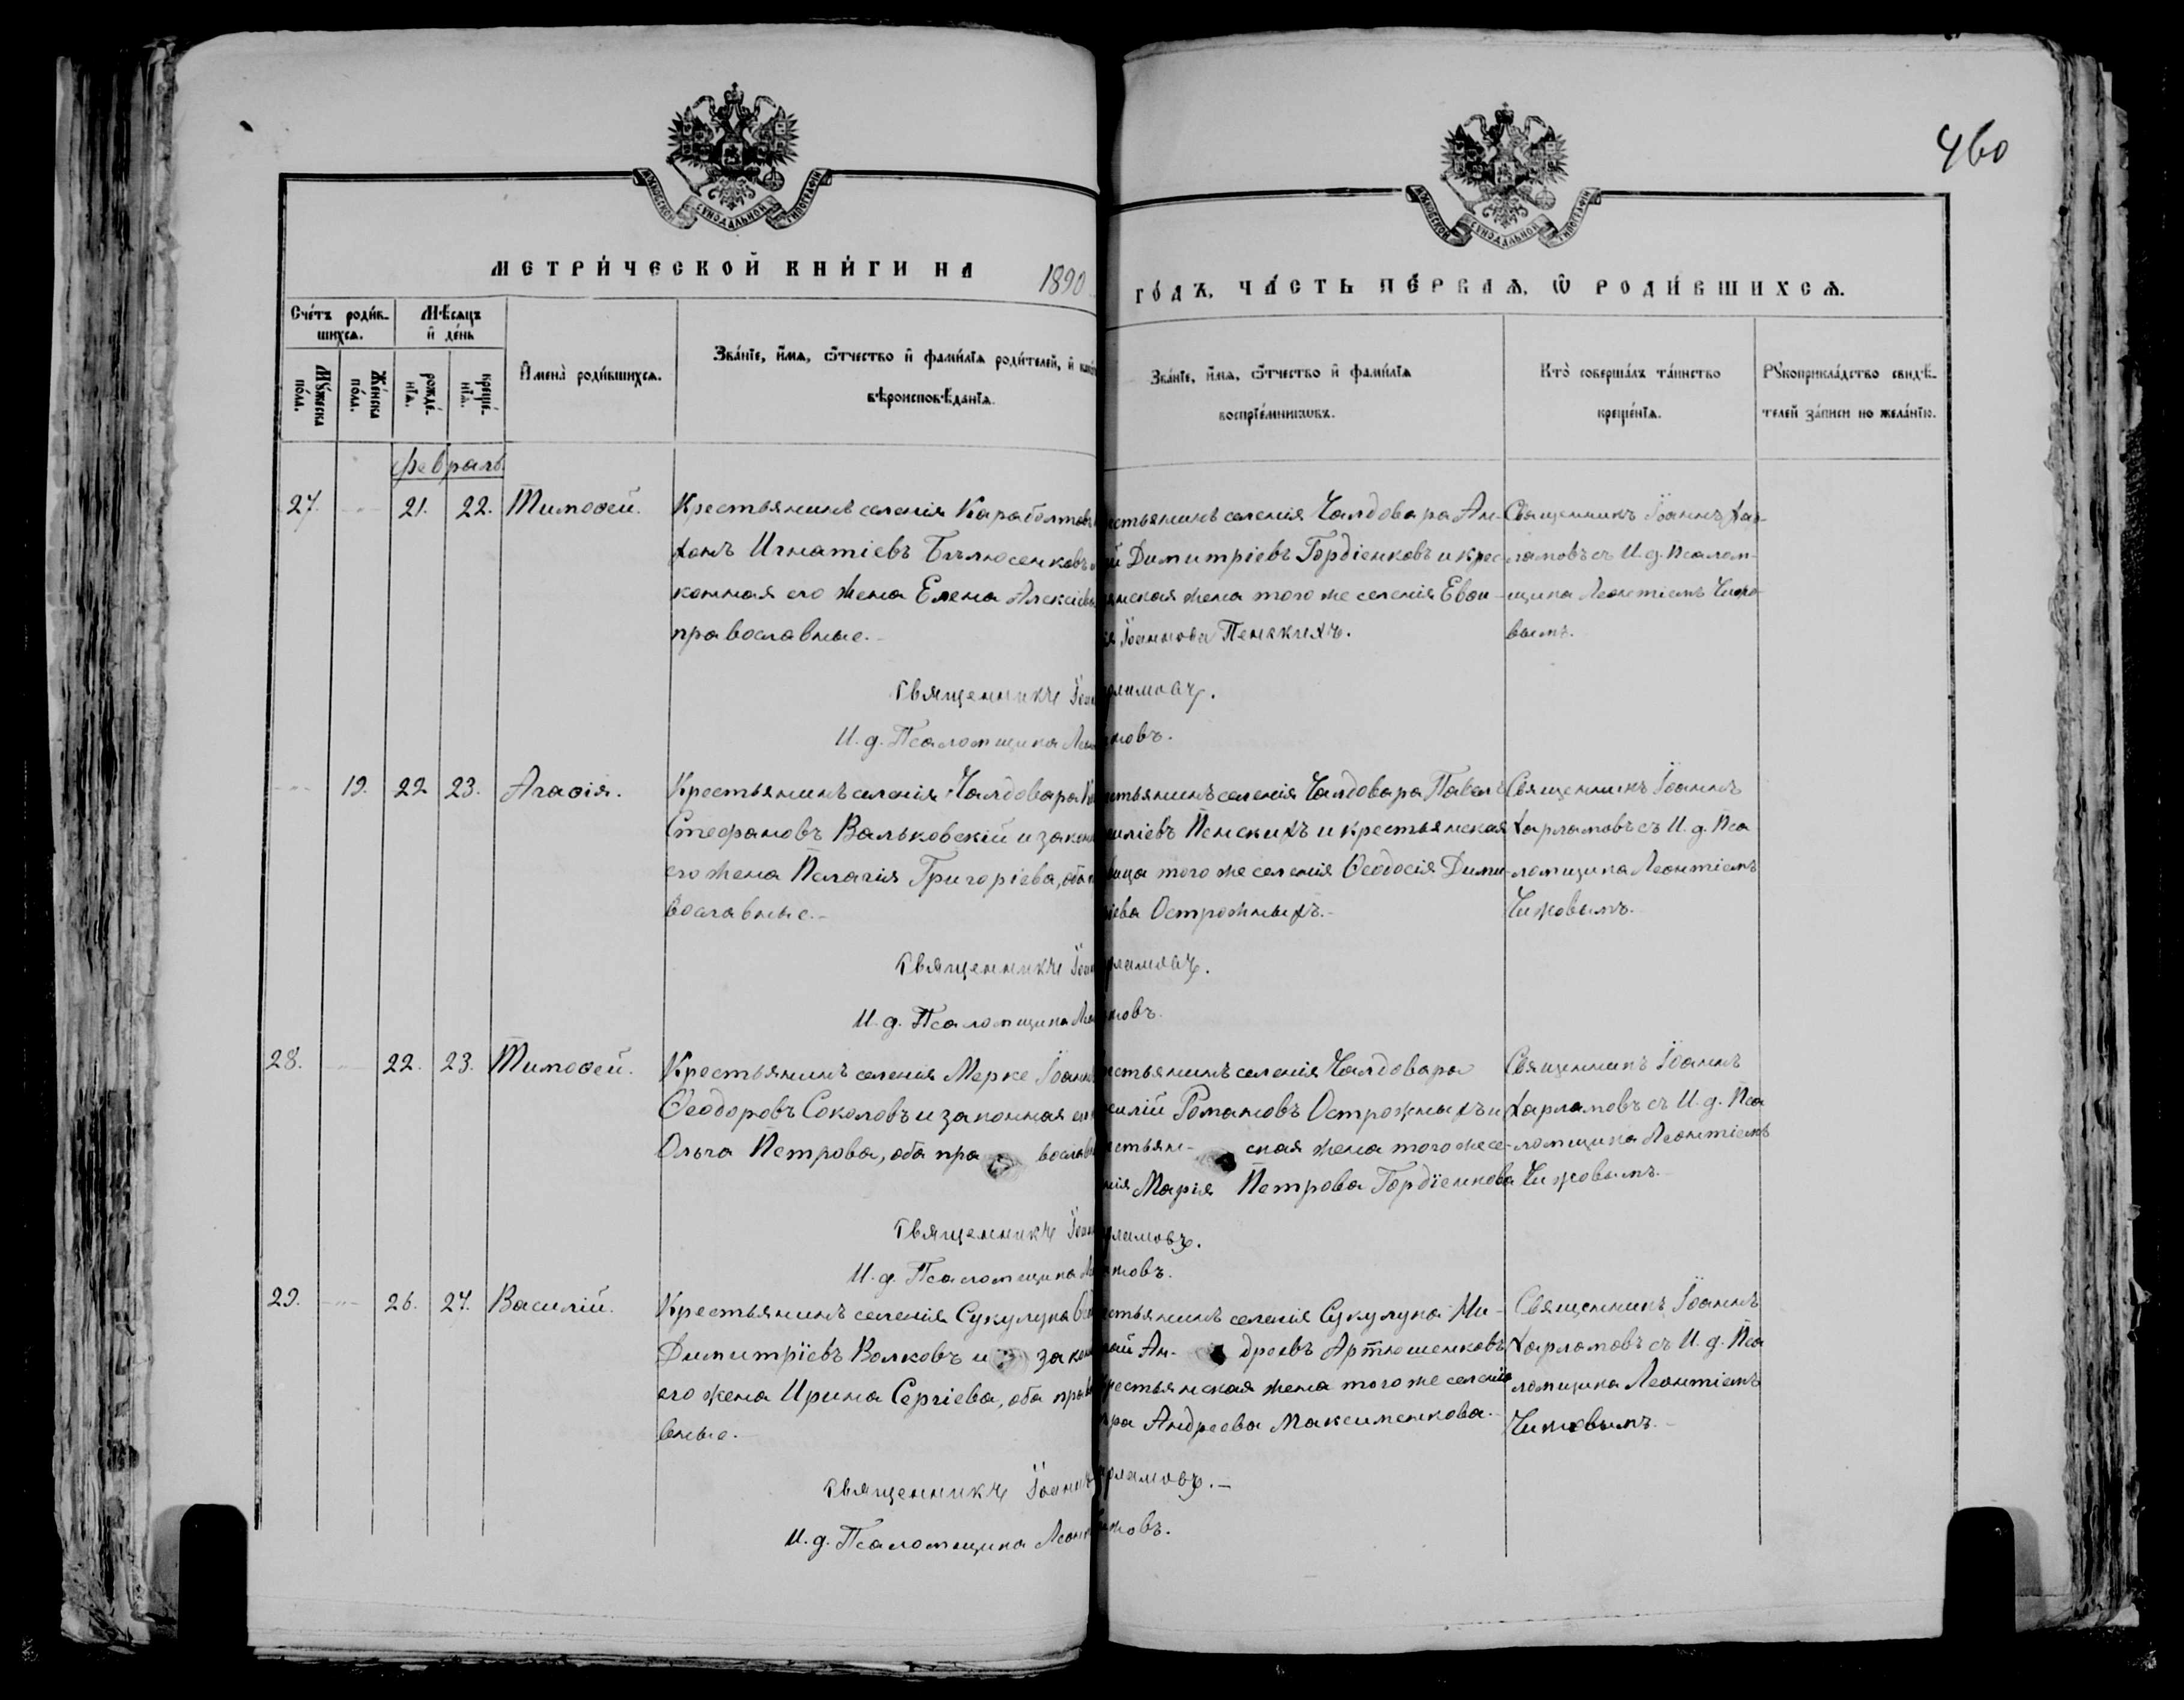 460
МОСКОВСКОЙ СѴНОДАЛЬНОЙ ТИПОГРАФІИ
МОСКОВСКОЙ СѴНОДАЛЬНОЙ ТИПОГРАФІИ
МЕТРИ́ЧЕСКОЙ КНИ́ГИ НА 1890
ГО́ДЪ, ЧА́СТЬ ПЕ́РВАѦ, Ѡ҆ РОДИ́ВШИХСѦ.
Сче́тъ роди́в-
шихсѧ.
Мѣсѧцъ
и҆ де́нь
Мꙋ́жеска
по́ла.
Же́нска
по́ла.
рожде́-
нїѧ.
креще́-
нїѧ.
И҆мена̀ роди́вшихсѧ.
Зва́нїе, и҆́мѧ, ѻ҆́тчество и҆ фамѝлїѧ роди́телей, и҆
вѣроисповѣ́данїѧ.
Зва́нїе, и҆́мѧ, ѻ҆́тчество и҆ фамѝлїѧ
воспрїе́мникѡвъ.
Кто̀ соверша́лъ та́инство
креще́нїѧ.
Рꙋкоприкла́дство свидѣ́-
телей за́писи по жела́нїю.
Февраль
27. 21. 22. Тимоѳей.
Крестьянинъ селенія Караболтовъ
Игнатіевъ Бѣлюсенковъ
конная его жена Елена Алексіева
православные.
естьянинъ селенія Чалдовара Ан-
й Димитріевъ Гордіенковъ и крес-
янская жена того же селенія Евѳи-
я Іоаннова Пенскихъ.
Священникъ Іоаннъ Хар-
ламовъ съ И. д. Псалом-
щика Леонтіемъ Чижо-
вымъ.
Священникъ Іоан рламовъ.
И. д. Псаломщика Леон жовъ.
19. 22 23. Агаѳія.
Крестьянинъ селенія Чалдовара
Стефановъ Вальковскій и закон
его жена Пелагія Григоріева, оба п
вославные.-
стьянинъ селенія Чалдовара Павелъ
силіевъ Пенскихъ и крестьянская
вица того же селенія Ѳеодосія Дими-
ріева Острожныхъ.-
Священникъ Іоаннъ
Харламовъ съ И. д. Пса
ломщика Леонтіемъ
Чижовымъ.
Священникъ Іоан рламовъ.
И. д. Псаломщика Ле жовъ.
28. 22. 23. Тимоѳей.
Крестьянинъ селенія Мерке Іоаннъ
Ѳеодоровъ Соколовъ и законная его
Ольга Петрова, оба пра вославн
естьянинъ селенія Чалдовара
силій Романовъ Острожныхъ и
стьян- ская жена того же се-
нія Марія Петрова Гордіенкова
Священникъ Іоаннъ
Харламовъ съ И. д. Пса
ломщика Леонтіемъ
Чижовымъ.
Священникъ Іоан рламовъ.
И. д. Псаломщика Ле жовъ.
29. 26. 27. Василій.
Крестьянинъ селенія Сукулука
Димитріевъ Волковъ и закон
его жена Ирина Сергіева, оба прав
вные.
стьянинъ селенія Сукулука Ми-
ай Ан- дреевъ Артюшенковъ
рестьянская жена того же селенія
ра Андреева Максименкова.
Священникъ Іоаннъ
Харламовъ съ И. д. Пса
ломщика Леонтіемъ
Чижовымъ.
Священникъ Іоаннъ рламовъ.-
И. д. Псаломщика Леон жовъ.